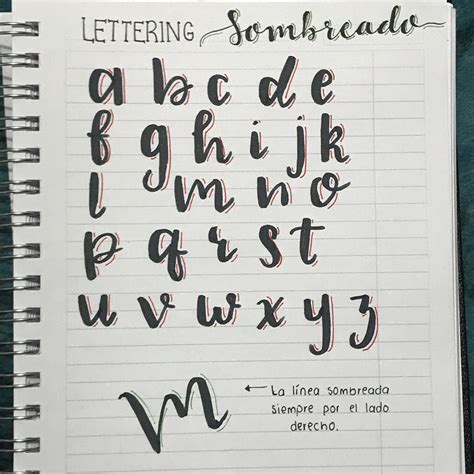 LETTERING Sombreado
a b c d e
f g h i j k
l m n o
p q r s t
u v w x y z
m ← La línea sombreada
siempre por el lado
derecho.